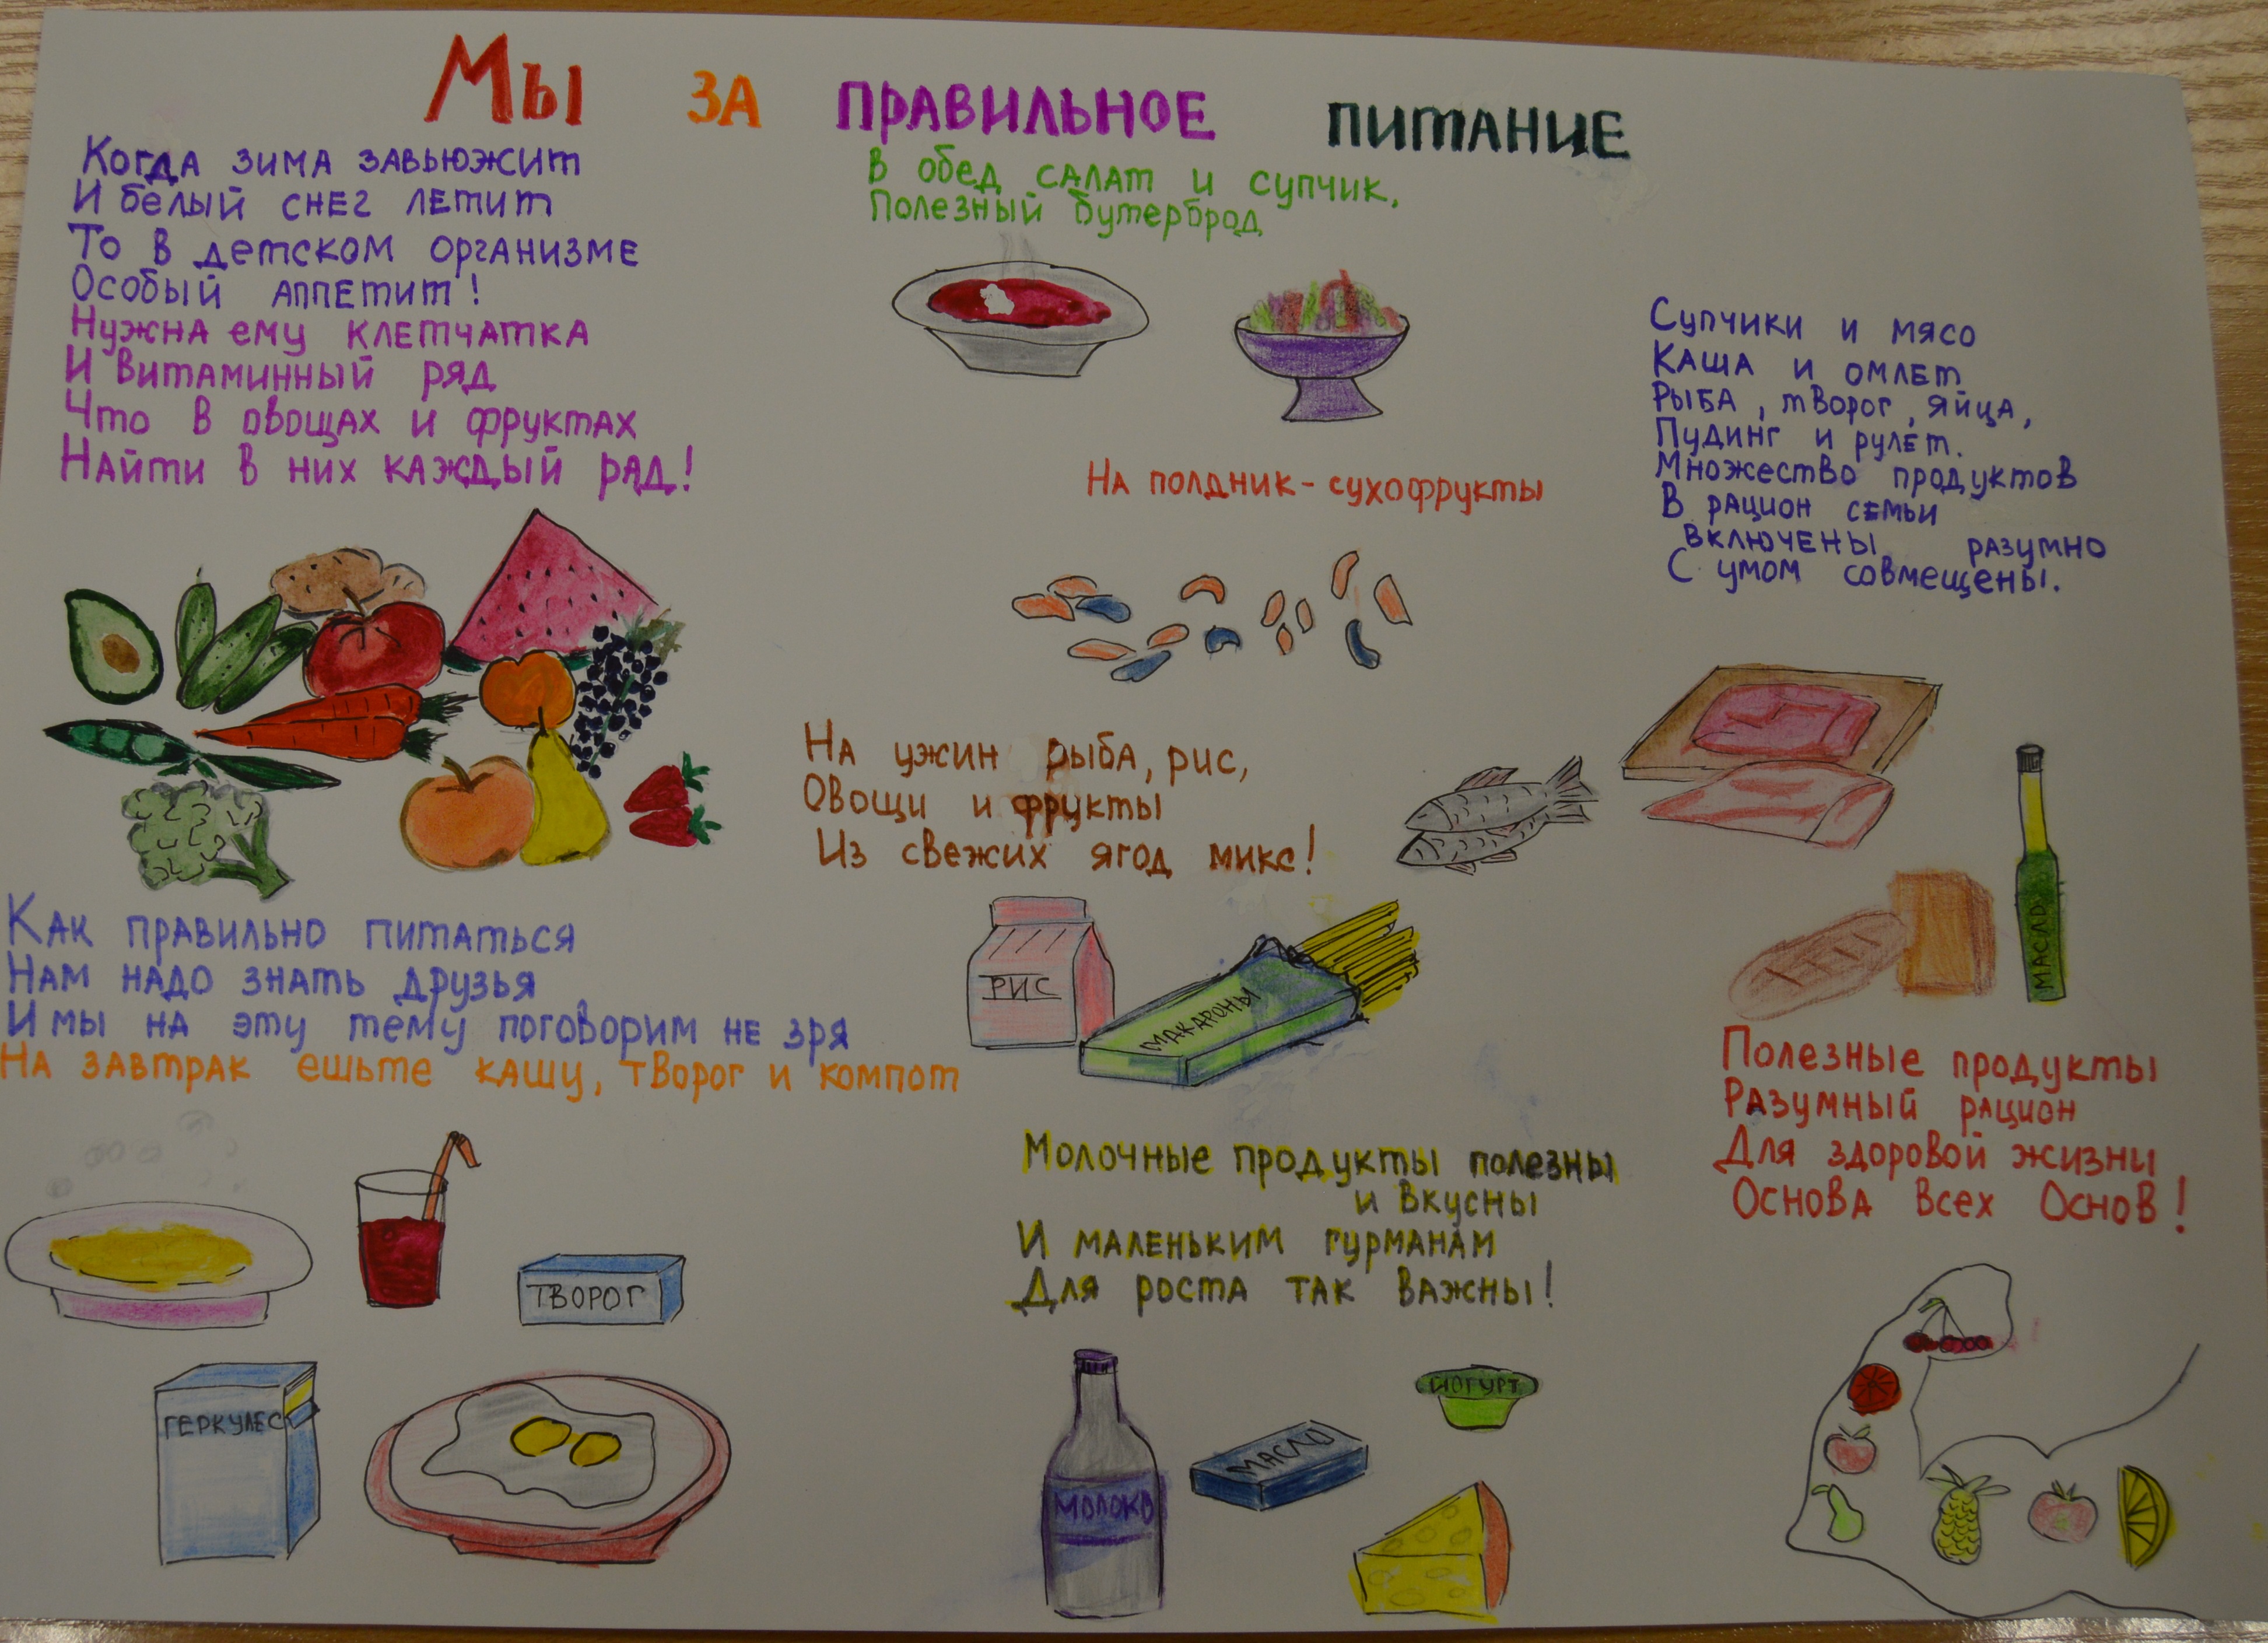 Мы за правильное питание
Когда зима завьюжит
И белый снег летит
То в детском организме
Особый аппетит!
Нужна ему клетчатка
И витаминный ряд
Что в овощах и фруктах
Найти в них каждый рад!
Как правильно питаться
Нам надо знать друзья
И мы на эту тему поговорим не зря
На завтрак ешьте кашу, творог и компот
ТВОРОГ
ГЕРКУЛЕС
В обед салат и супчик,
Полезный бутерброд
На полдник - сухофрукты
На ужин рыба, рис,
Овощи и фрукты
Из свежих ягод микс!
РИС
МАКАРОНЫ
Молочные продукты полезны
и вкусны
И маленьким гурманам
Для роста так важны!
ЙОГУРТ
МАСЛО
МОЛОКО
Супчики и мясо
Каша и омлет
Рыба, творог, яйца,
Пудинг и рулет.
Множество продуктов
В рацион семьи
включены разумно
С умом совмещены.
МАСЛО
Полезные продукты
Разумный рацион
Для здоровой жизни
Основа всех Основ!